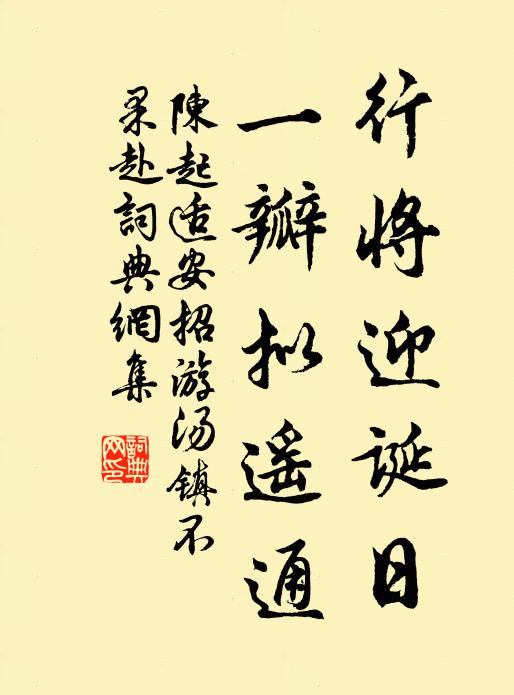 行将迎誕日
一瓣拟遥通
陳起适安招游汤镇不
果赴詞典網集
詞典網印